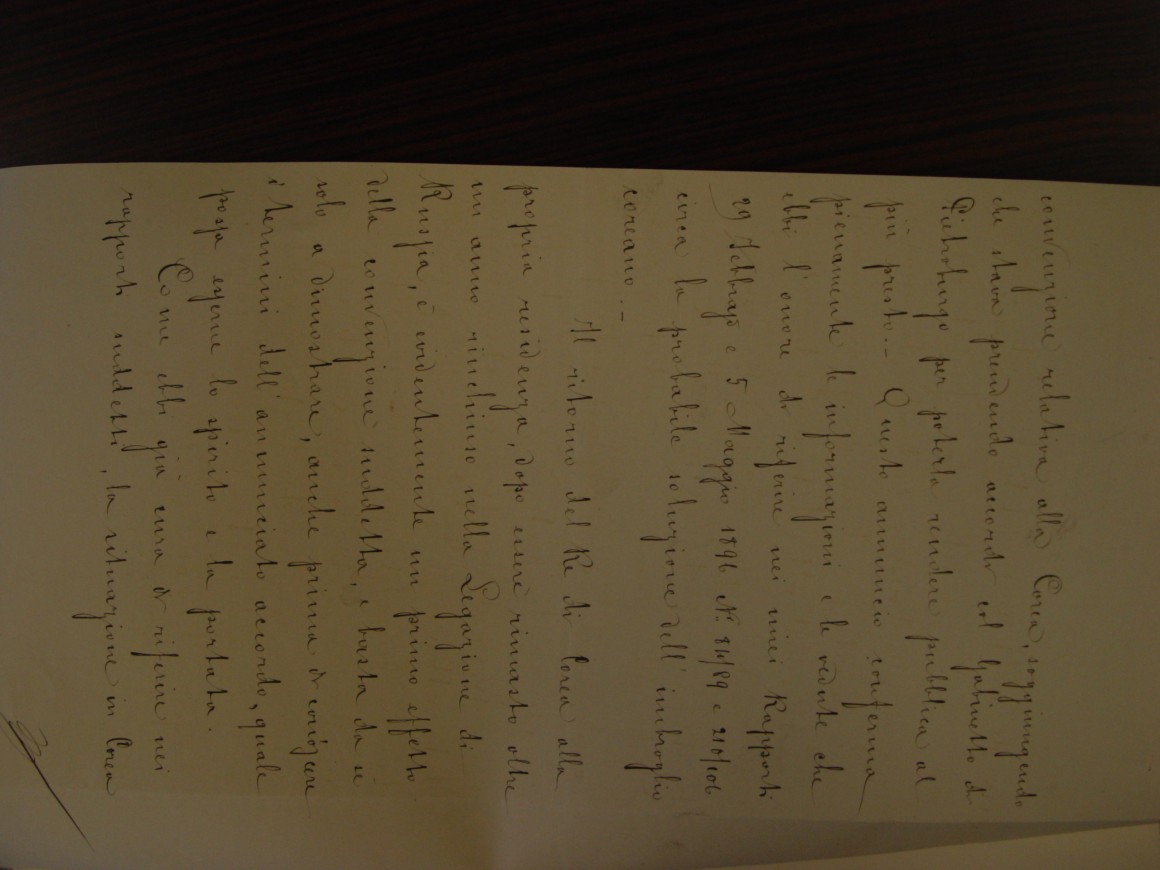 convenzione relativa alla Corea, soggiungendo
che stava prendendo accordi col Gabinetto di
Pietroburgo per poterla rendere pubblica al
più presto.- Questo annuncio conferma
pienamente le informazioni e le vedute che
ebbi l'onore di riferire nei miei Rapporti
29 Febbraio e 5 Maggio 1896 N° 84/89 e 210/106
circa la probabile soluzione dell'imbroglio
coreano.-
Il ritorno del Re di Corea alla
propria residenza, dopo essere rimasto oltre
un anno rinchiuso nella Legazione di
Russia, è evidentemente un primo effetto
della convenzione suddetta, e basta da sè
solo a dimostrare, anche prima di conoscere
i termini dell'annunciato accordo, quale
possa esserne lo spirito e la portata.
Come ebbi già cura di riferire nei
rapporti suddetti, la situazione in Corea